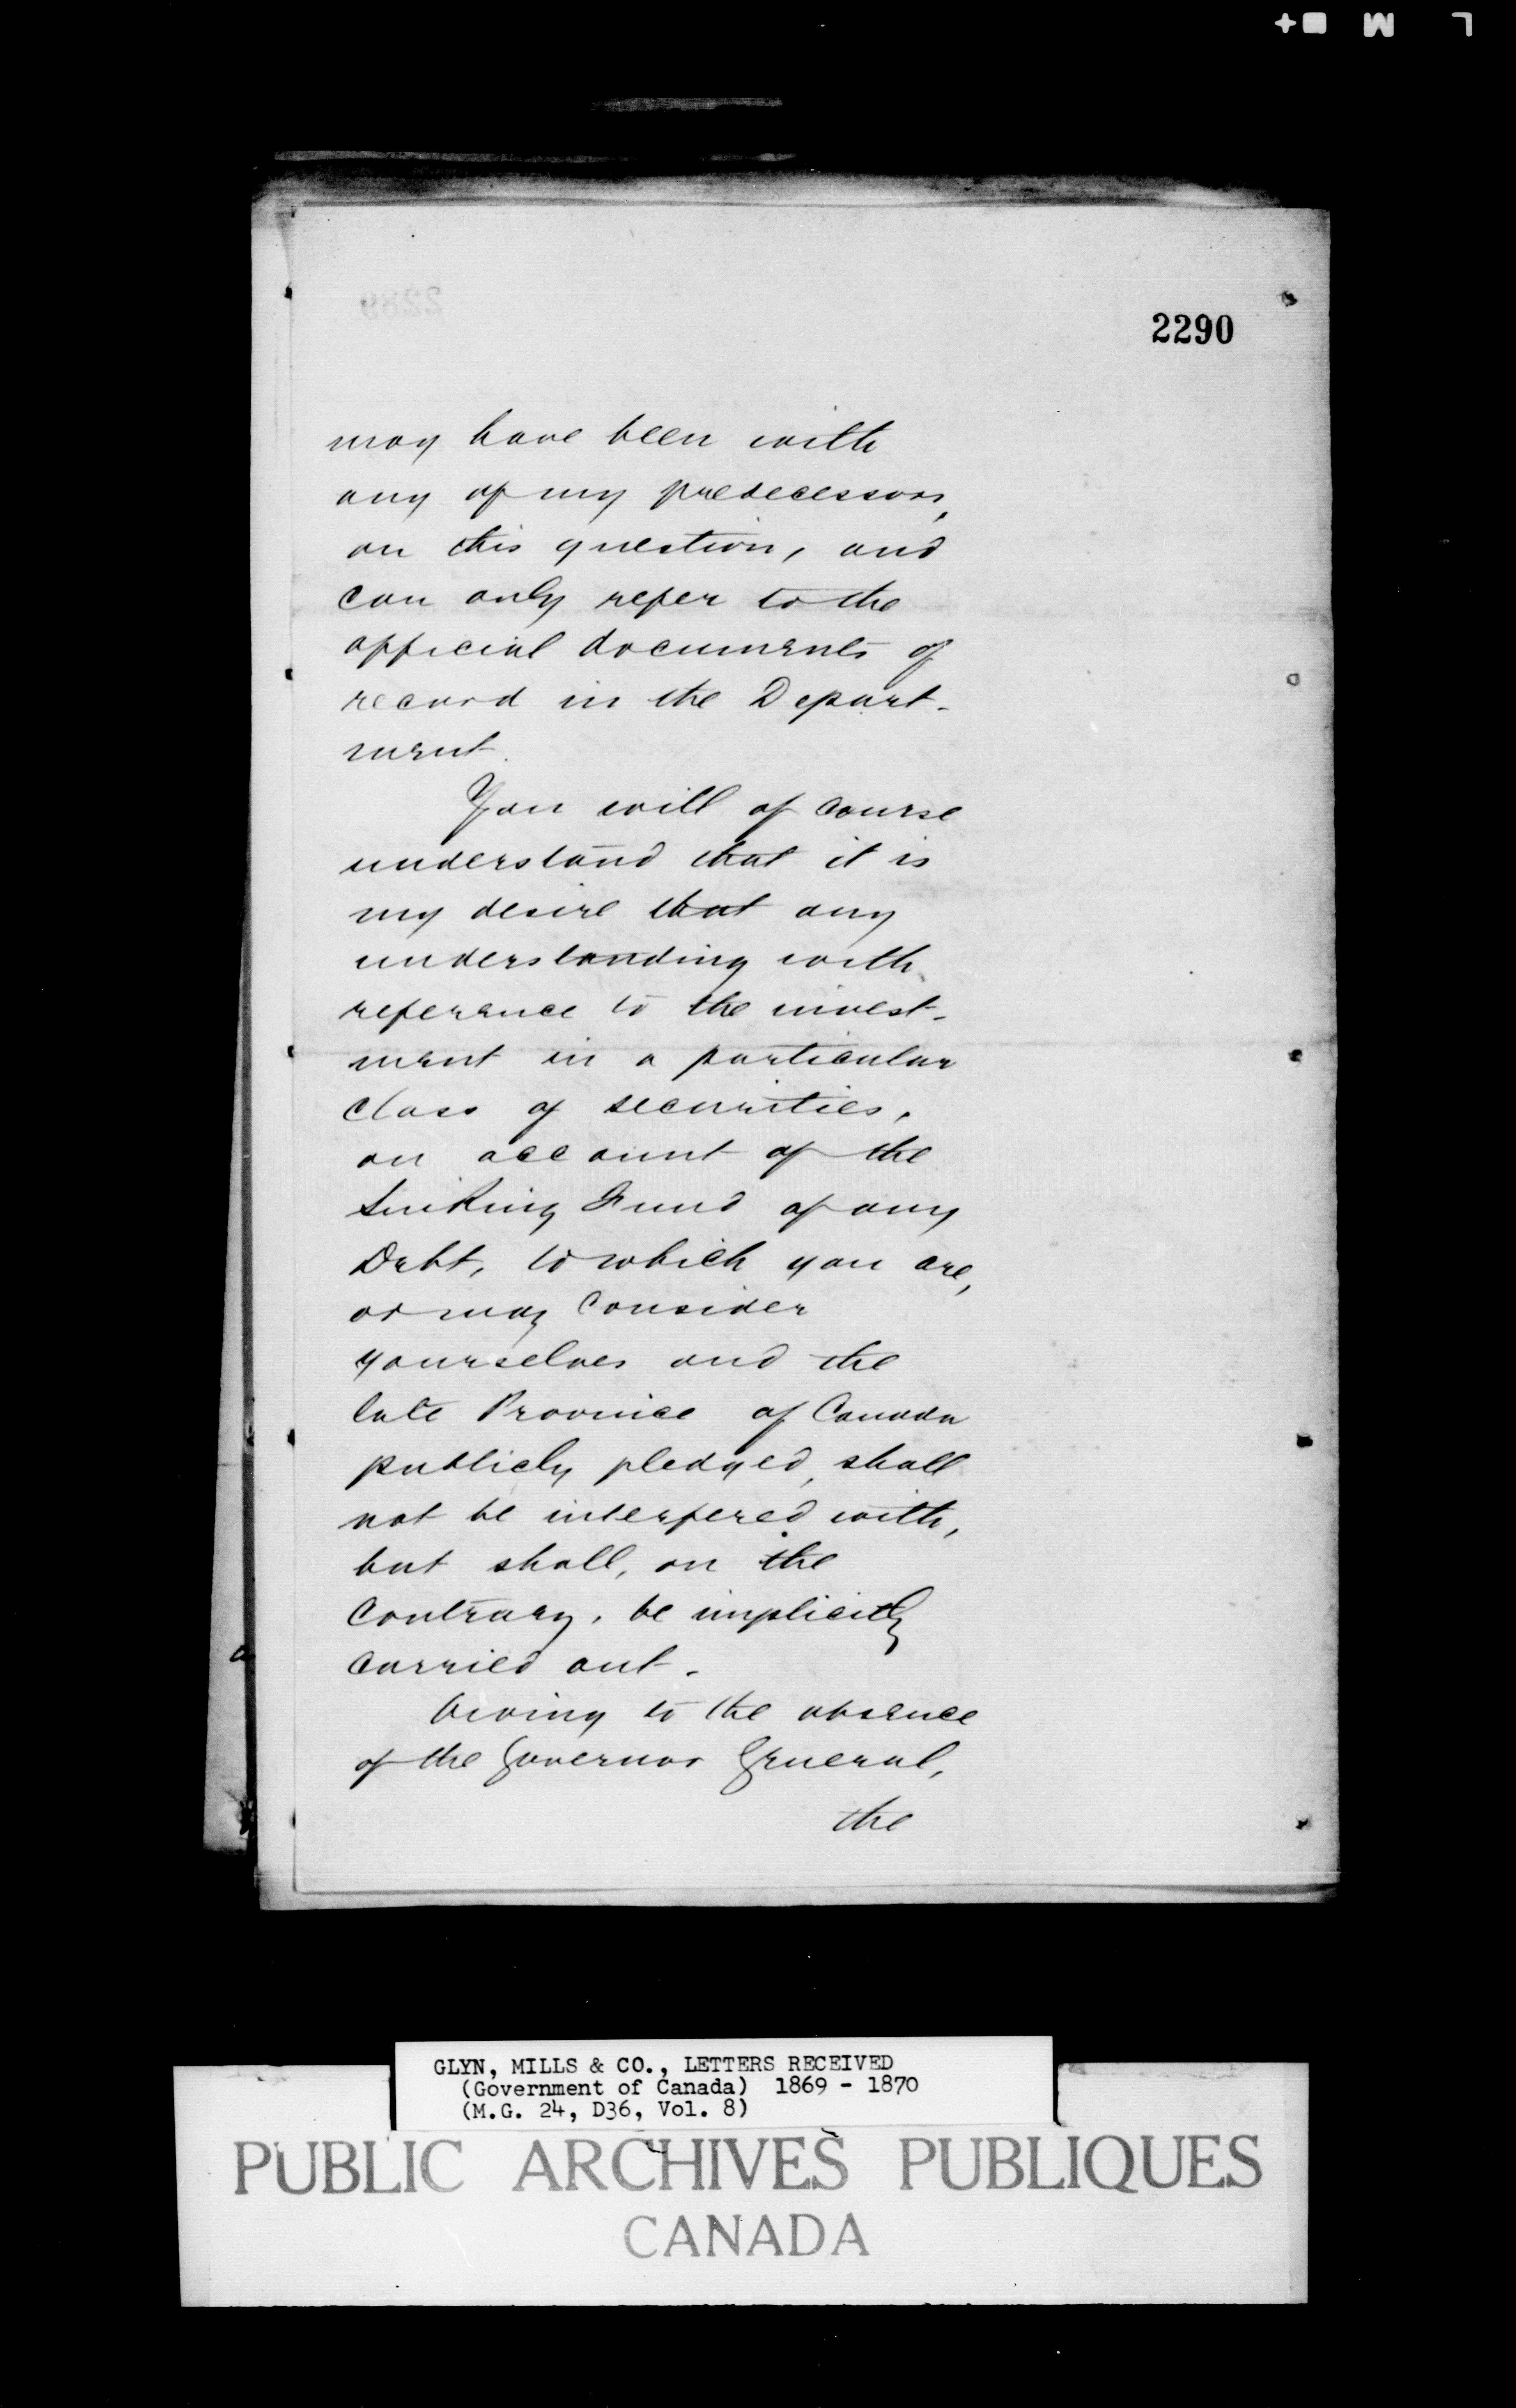 2290
may have been with
any of my predecessors,
on this question, and
can only refer to the
official documents of
record in the Depart-
ment.
You will of course
understand that it is
my desire that any
understanding with
reference to the invest-
ment in a particular
class of securities,
on account of the
Sinking Fund of any
Debt, to which you are,
or may consider
yourselves and the
late Province of Canada
publicly pledged, shall
not be interfered with,
but shall, on the
contrary, be implicitly
carried out.
Owing to the absence
of the Governor General,
the
GLYN, MILLS & CO., LETTERS RECEIVED
(Government of Canada) 1869 - 1870
(M.G. 24, D36, Vol. 8)
PUBLIC ARCHIVES PUBLIQUES
CANADA